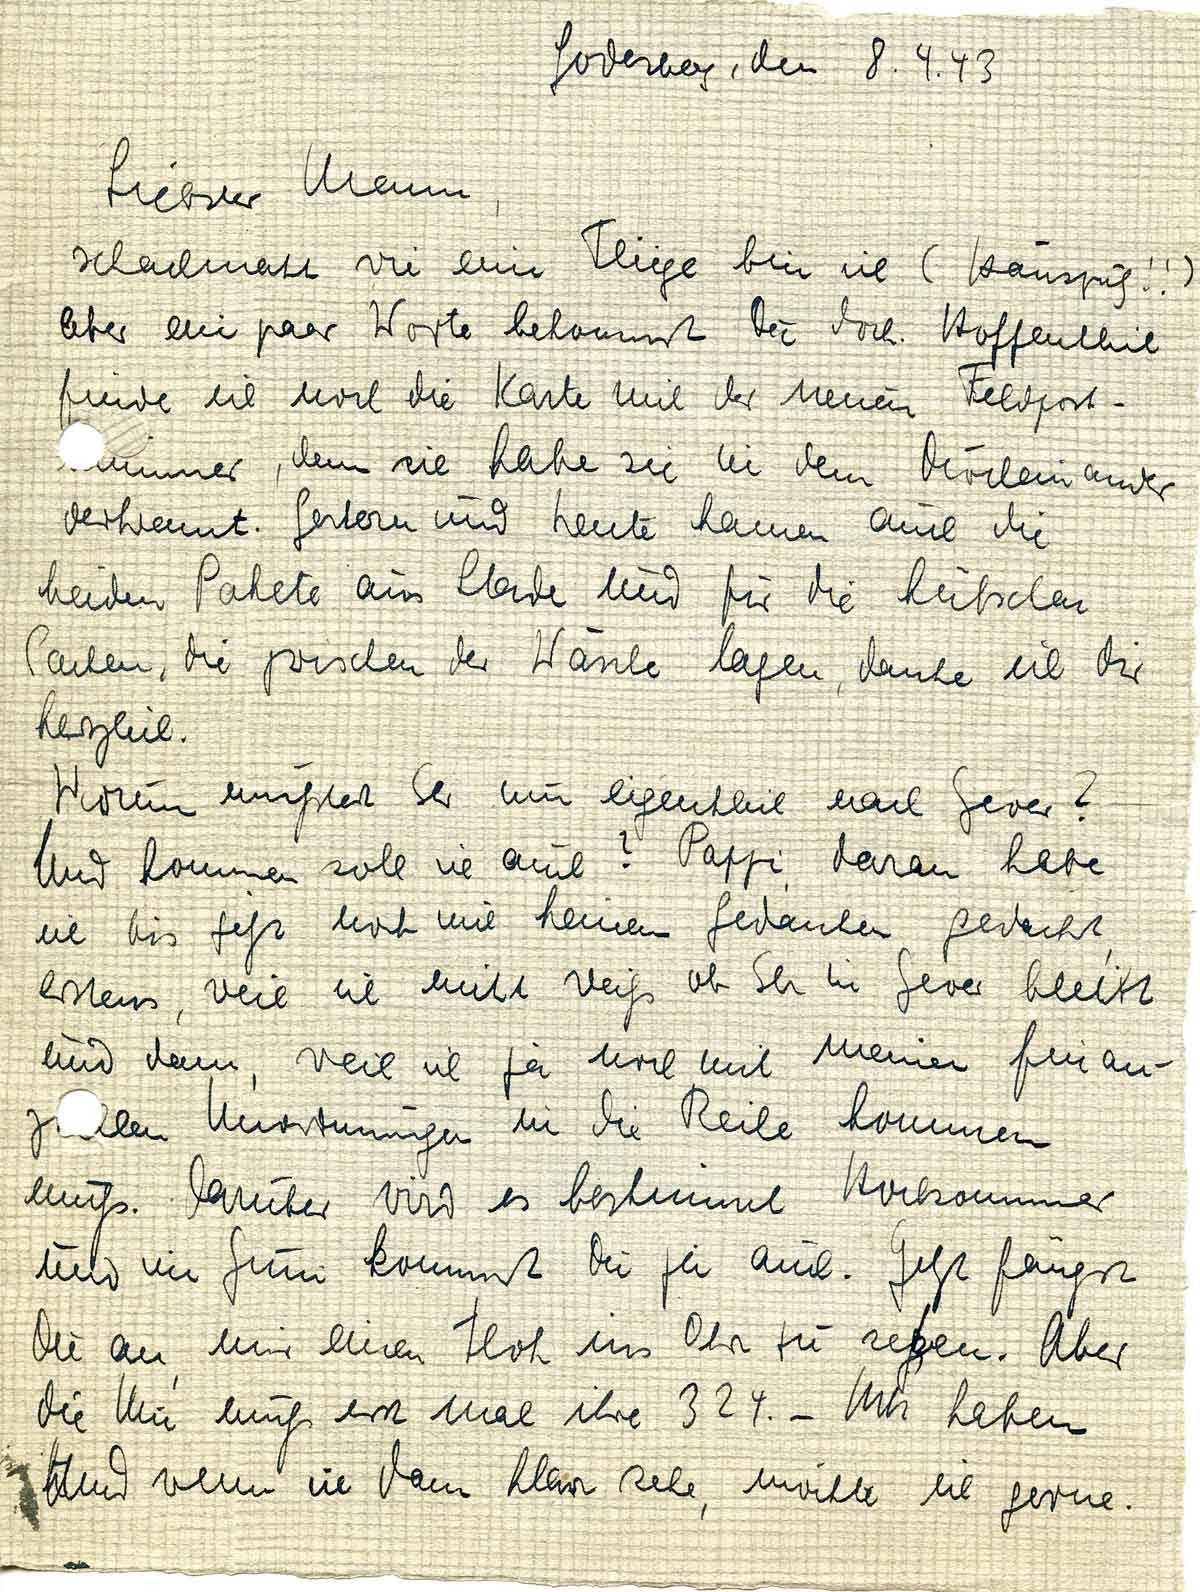 Godesberg, den 8.4.43
Liebster Mann,
schachmatt wie ein Fliege bin ich (Hausputz!!)
Aber ein paar Worte bekommst Du doch. Hoffentlich
finde ich noch die Karte mit der neuen Feldpost-
nummer, denn ich habe sie in dem Durcheinander
verkramt. Gestern und heute kamen auch die
beiden Pakete aus Stade und für die hübschen
Sachen, die zwischen der Wäsche lagen, danke ich Dir
herzlich.
Warum musstet Ihr nun eigentlich nach Jever?
Und kommen soll ich auch? Pappi, daran habe
ich bis jetzt noch mit keinem Gedanken gedacht,
erstens, weil ich nicht weiss ob Ihr in Jever bleibt
und dann, weil ich ja noch mit meinen finan-
ziellen Unordnungen in die Reihe kommen
muss. Darüber wird es bestimmt Hochsommer
und im Juni kommst Du ja auch. Jetzt fängst
Du an, mir einen Floh ins Ohr zu setzen. Aber
die muss erst mal ihre 324.- Mk haben
Und wenn ich dann klar sehe, möchte ich gerne.